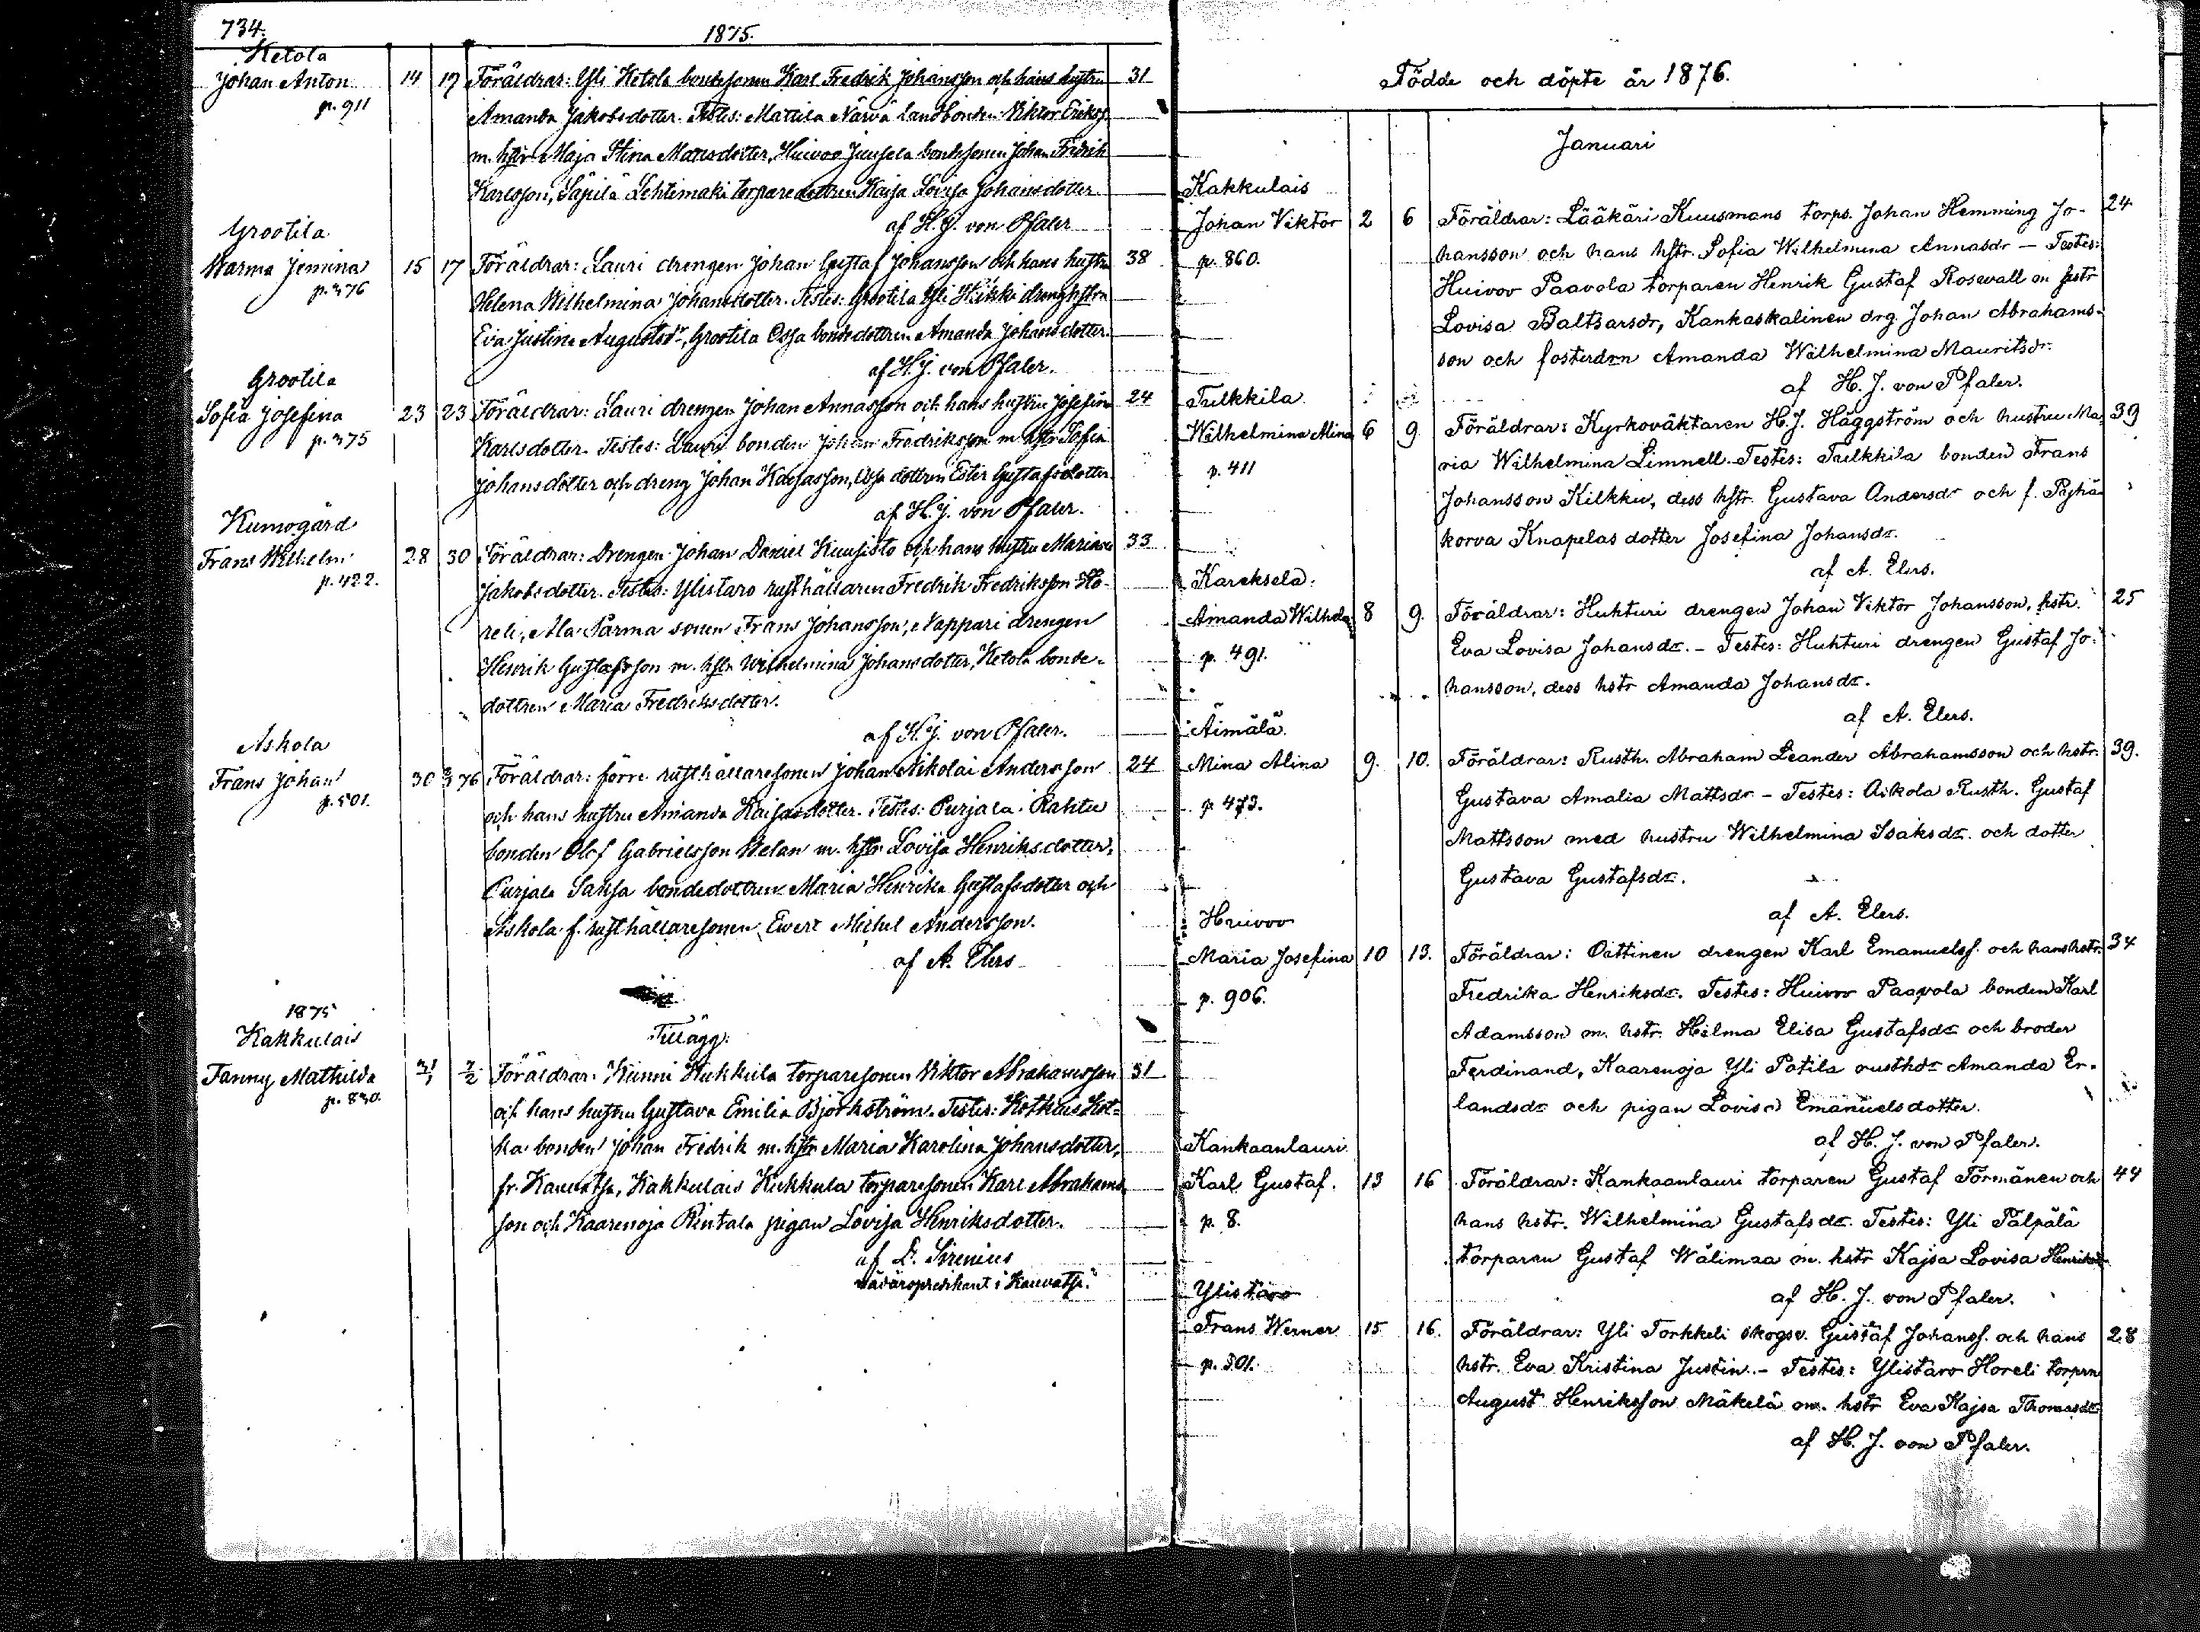 734.
1875.
Ketola
Johan Anton 14 17 Föräldrar: Yli Ketola bondesonen Karl Fredrik Johansson och hans hustru 31
p. 911 Amanda Jakobsdotter. Testes: Mattila Närvä landbonden Viktor Eriksj
m. hstr Maja Stina Matsdotter, Huivoo Juusela bondesonen Johan Fredrik
Karlsson, Säpilä Lehtimäki torparedottren Kajsa Lovisa Johansdotter
af H. J. von Pfaler
Grootila
Warma Jemina 15 17 Föräldrar: Lauri drengen Johan Gustaf Johansson och hans hustru 38
p. 376 Helena Wilhelmina Johansdotter. Testes: Grootila Yli Hikki drenghstrn
Eva Justina Augustsdr, Grootila Ossa bondedottren Amanda Johansdotter.
af H. J. von Pfaler.
Grootila
Sofia Josefina 23 23 Föräldrar: Lauri drengen Johan Annasson och hans hustru Josefina 24
p. 375 Karlsdotter. Testes: Lauri bonden Johan Fredriksson m. hstr Sofia
Johansdotter och dreng Johan Kajsasson, Ossa dottren Ester Gustafsdotter
af H. J. von Pfaler.
Kumogård
Frans Wilhelm 28 30 Föräldrar: Drengen Johan Daniel Kuusisto och hans hustru Maria 33
p. 422. Jakobsdotter. Testes: Ylistaro rusthållaren Fredrik Fredriksson Ho-
reli, Ala Parma sonen Frans Johansson, Nappari drengen
Henrik Gustafsson m. hstr Wilhelmina Johansdotter, Ketola bonde-
dottren Maria Fredriksdotter.
af H. J. von Pfaler.
Askola
Frans Johan 30 3/76 Föräldrar: förre rusthållaresonen Johan Nikolai Andersson 24
p. 501. och hans hustru Amanda Kajsasdotter. Testes: Purjala Rahtu
bonden Olof Gabrielsson Welan m. hstr Lovisa Henriksdotter,
Purjala Saksa bondedottren Maria Henrika Gustafsdotter och
Askola f. rusthållaresonen Ewert Michel Andersson.
af A. Elers
1875
Kakkulais
Tillägg:
Fanny Mathilda 31/1 7/2 Föräldrar: Kunni Kukkula torparesonen Viktor Abrahamsson 31
p. 830. och hans hustru Gustava Emilia Björkström. Testes: Kotkais Kot-
ka bonden Johan Fredrik m. hstr Maria Karolina Johansdotter,
fr. Kauvatsa, Kakkulais Kukkula torparesonen Karl Abrahams
son och Kaarenoja Rintala pigan Lovisa Henriksdotter.
af L. Sirenius
sädäropredikant i Kauvatsa.
Födde och döpte år 1876.
Januari
Kakkulais
Johan Viktor 2 6 Föräldrar: Lääkäri Kuusmans torps. Johan Hemming Jo- 24
p. 860. hansson och hans hstr. Sofia Wilhelmina Annasdr – Testes:
Huivoo Paavola torparen Henrik Gustaf Rosevall m hstr
Lovisa Baltsarsdr, Kankaskalinen drg. Johan Abrahams-
son och fosterdrn Amanda Wilhelmina Mauritsdr.
af H. J. von Pfaler.
Tulkkila
Wilhelmina Alina 6 9 Föräldrar: Kyrkoväktaren H. J. Häggström och hustru Ma- 39
p. 411 ria Wilhelmina Limnell. Testes: Tulkkila bonden Frans
Johansson Kilkku, dess hstr. Gustava Andersdr och f. Pyhä-
korva Knapelas dotter Josefina Johansdr.
af A. Elers.
Kareksela.
Amanda Wilhda 8 9. Föräldrar: Huhturi drengen Johan Viktor Johansson, hstr. 25
p. 491. Eva Lovisa Johansdr. – Testes: Huhturi drengen Gustaf Jo-
hansson, dess hstr Amanda Johansdr.
af A. Elers.
Äimälä.
Mina Alina 9. 10. Föräldrar: Rusth. Abraham Leander Abrahamsson och hstr. 39.
p 473. Gustava Amalia Mattsdr – Testes: Askola Rusth. Gustaf
Mattsson med hustru Wilhelmina Isaksdr. och dotter
Gustava Gustafsdr.
af A. Elers.
Huivoo
Maria Josefina 10 13. Föräldrar: Oittinen drengen Karl Emanuelss. och hans hstr. 34
p. 906. Fredrika Henriksdr. Testes: Huivoo Paavola bonden Karl
Adamsson m. hstr. Hilma Elisa Gustafsdr och broder
Ferdinand, Kaarenoja Yli Potila rusthdr Amanda Er-
landsdr och pigan Lovisa Emanuelsdotter.
af H. J. von Pfaler.
Kankaanlauri
Karl Gustaf. 13 16 Föräldrar: Kankaanlauri torparen Gustaf Törmänen och 44
p. 8. hans hstr. Wilhelmina Gustafsdr. Testes: Yli Pälpälä
torparen Gustaf Wälimaa m. hstr Kajsa Lovisa Henriksdr
af H. J. von Pfaler.
Ylistaro
Frans Werner 15 16. Föräldrar: Yli Torkkeli skogsv. Gustaf Johanss. och hans 28
p. 301. hstr. Eva Kristina Justin. – Testes: Ylistaro Horeli torprn
August Henriksson Mäkelä m. hstr Eva Kajsa Thomasdr
af H. J. von Pfaler.